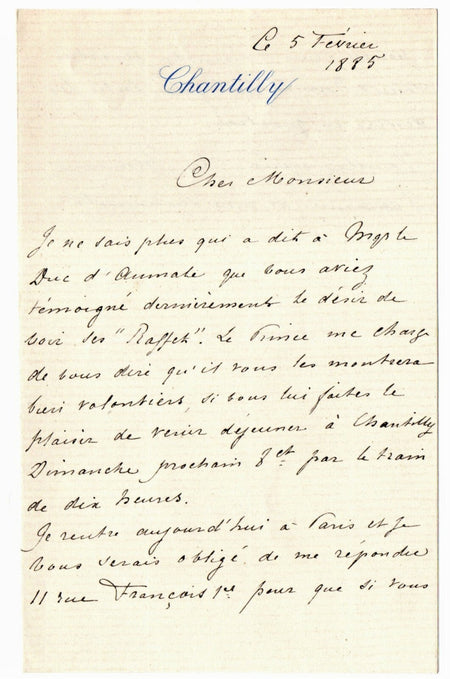 Le 5 Février
1885
Chantilly
Cher Monsieur
Je ne sais plus qui a dit à Mgr le
Duc d'Aumale que vous aviez
témoigné dernièrement le désir de
voir ses "Raffet". Le Prince me charge
de vous dire qu'il vous les montrera
bien volontiers, si vous lui faites le
plaisir de venir déjeuner à Chantilly
Dimanche prochain 8 ct par le train
de dix heures.
Je rentre aujourd'hui à Paris et je
vous serais obligé de me répondre
11 rue François 1er pour que si vous